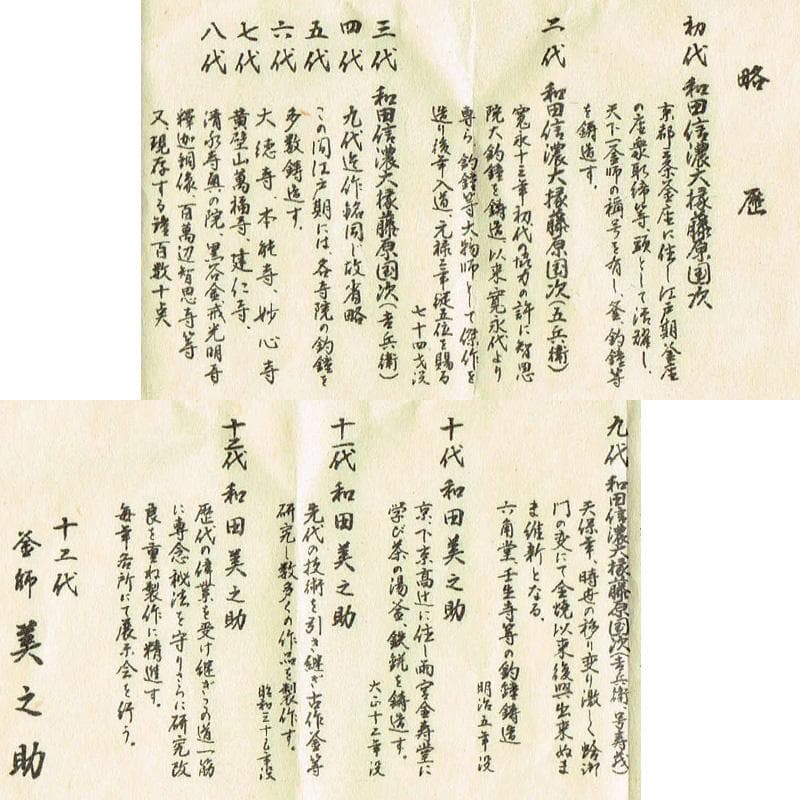 略歴
初代 和田信濃大掾藤原国次
京都三条釜座に住し江戸期釜座
の座衆取締等、頭として活躍し、
天下一釜師の称号を有し、釜、釣鐘等
を鋳造す。
二代 和田信濃大掾藤原国次(五兵衛)
寛永十三年初代の協力の許に智恩
院大釣鐘を鋳造、以来寛永代より
専ら、釣鐘等大物師として傑作を
造り後年入道、元禄三年従五位を賜る
七十四才没
三代 和田信濃大掾藤原国次(吉兵衛)
四代 九代迄作銘同じ故省略
五代 この間江戸期には、各寺院の釣鐘を
六代 多数鋳造す。
七代 大徳寺、本能寺、妙心寺
八代 黄壁山萬福寺、建仁寺、
清水寺奥の院、黒谷金戒光明寺
釋迦銅像、百萬辺智恩寺等
又、現存する鐘百数十点
九代 和田信濃大掾藤原国次(吉兵衛、号寿茂)
天保年、時世の移り変り激しく蛤御
門の変にて全焼以来後興出来ぬま
ま維新となる、
六角堂、壬生寺等の釣鐘鋳造
明治五年没
十代 和田美之助
京、下京高辻に住し雨宮金寿堂に
学び茶の湯釜、鉄鋺を鋳造す。
大正十二年没
十一代 和田美之助
先代の技術を引き継ぎ古作釜等
研究し数多くの作品を製作す。
昭和三十五年没
十二代 和田美之助
歴代の偉業を受け継ぎこの道一筋
に専念秘法を守りさらに研究改
良を重ね製作に精進す。
毎年各所にて展示会を行う。
十二代
釜師 美之助